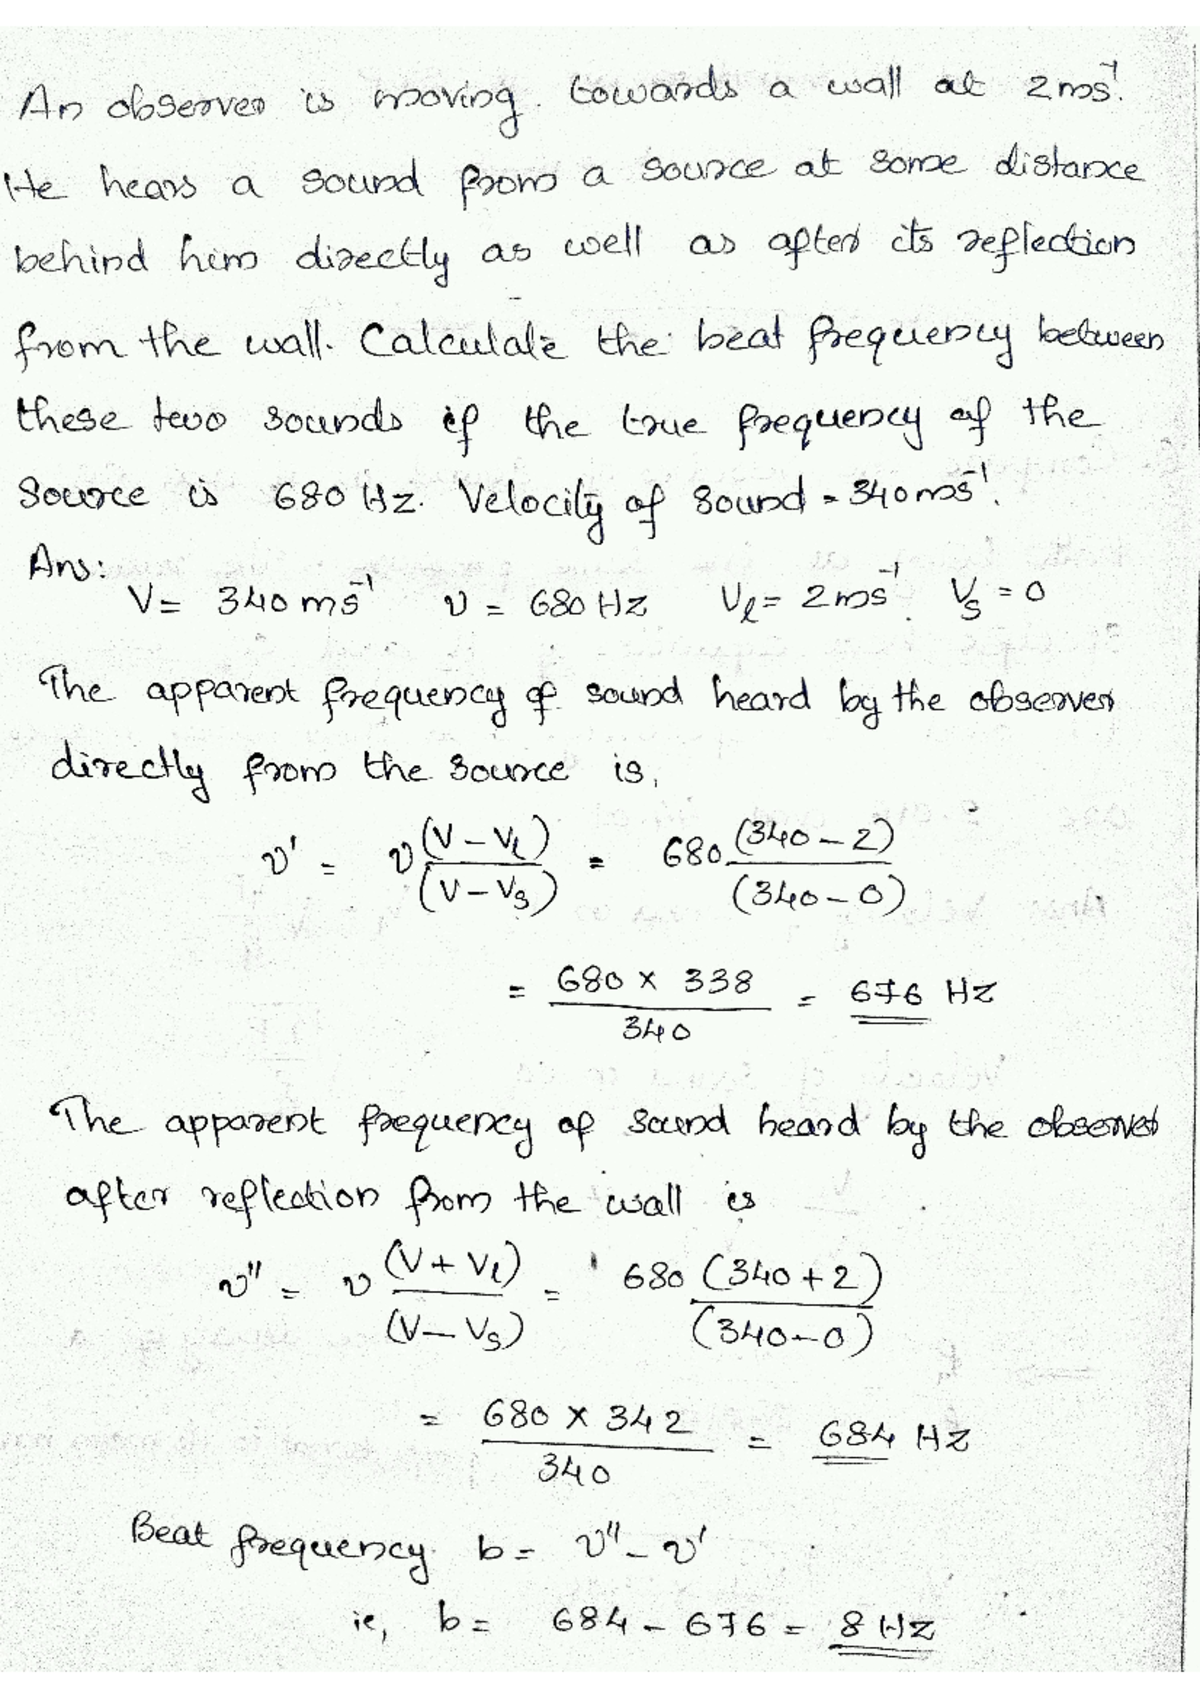 An observer is moving towards a wall at 2ms⁻¹.
He hears a sound from a source at some distance
behind him directly as well as after its reflection
from the wall. Calculate the beat frequency between
these two sounds if the true frequency of the
Source is 680 Hz. Velocity of sound = 340ms⁻¹.
Ans:
V = 340 ms⁻¹ ν = 680 Hz V_l = 2ms⁻¹. V_s = 0
The apparent frequency of sound heard by the observer
directly from the source is,
ν' = ν (V - V_l) / (V - V_s) = 680 (340 - 2) / (340 - 0)
= 680 × 338 / 340 = 676 Hz
The apparent frequency of sound heard by the observer
after reflection from the wall is
ν'' = ν (V + V_l) / (V - V_s) = 680 (340 + 2) / (340 - 0)
= 680 × 342 / 340 = 684 Hz
Beat frequency b = ν'' - ν'
ie, b = 684 - 676 = 8 Hz